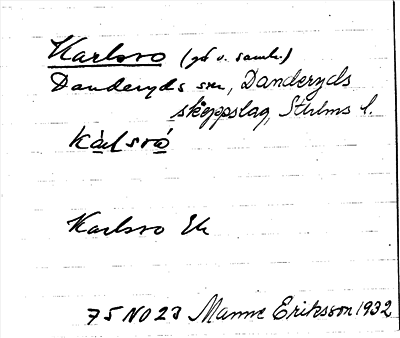 Karlsro (gd o. samh.)
Danderyds sn, Danderyds
skeppslag, Sthlms l.
kàlsró
Karlsro Ek
75 NO 23 Manne Eriksson 1932